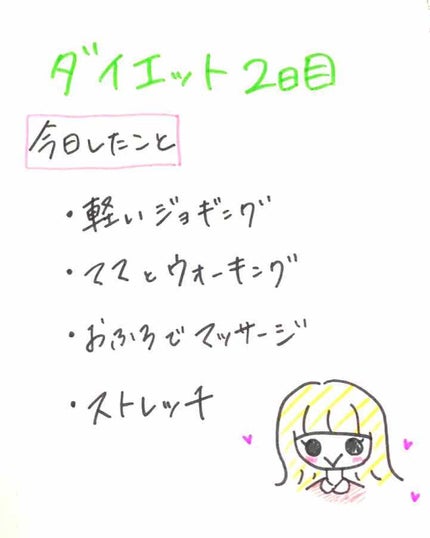 ダイエット2日目
今日したこと
・軽いジョギング
・ママとウォーキング
・おふろでマッサージ
・ストレッチ